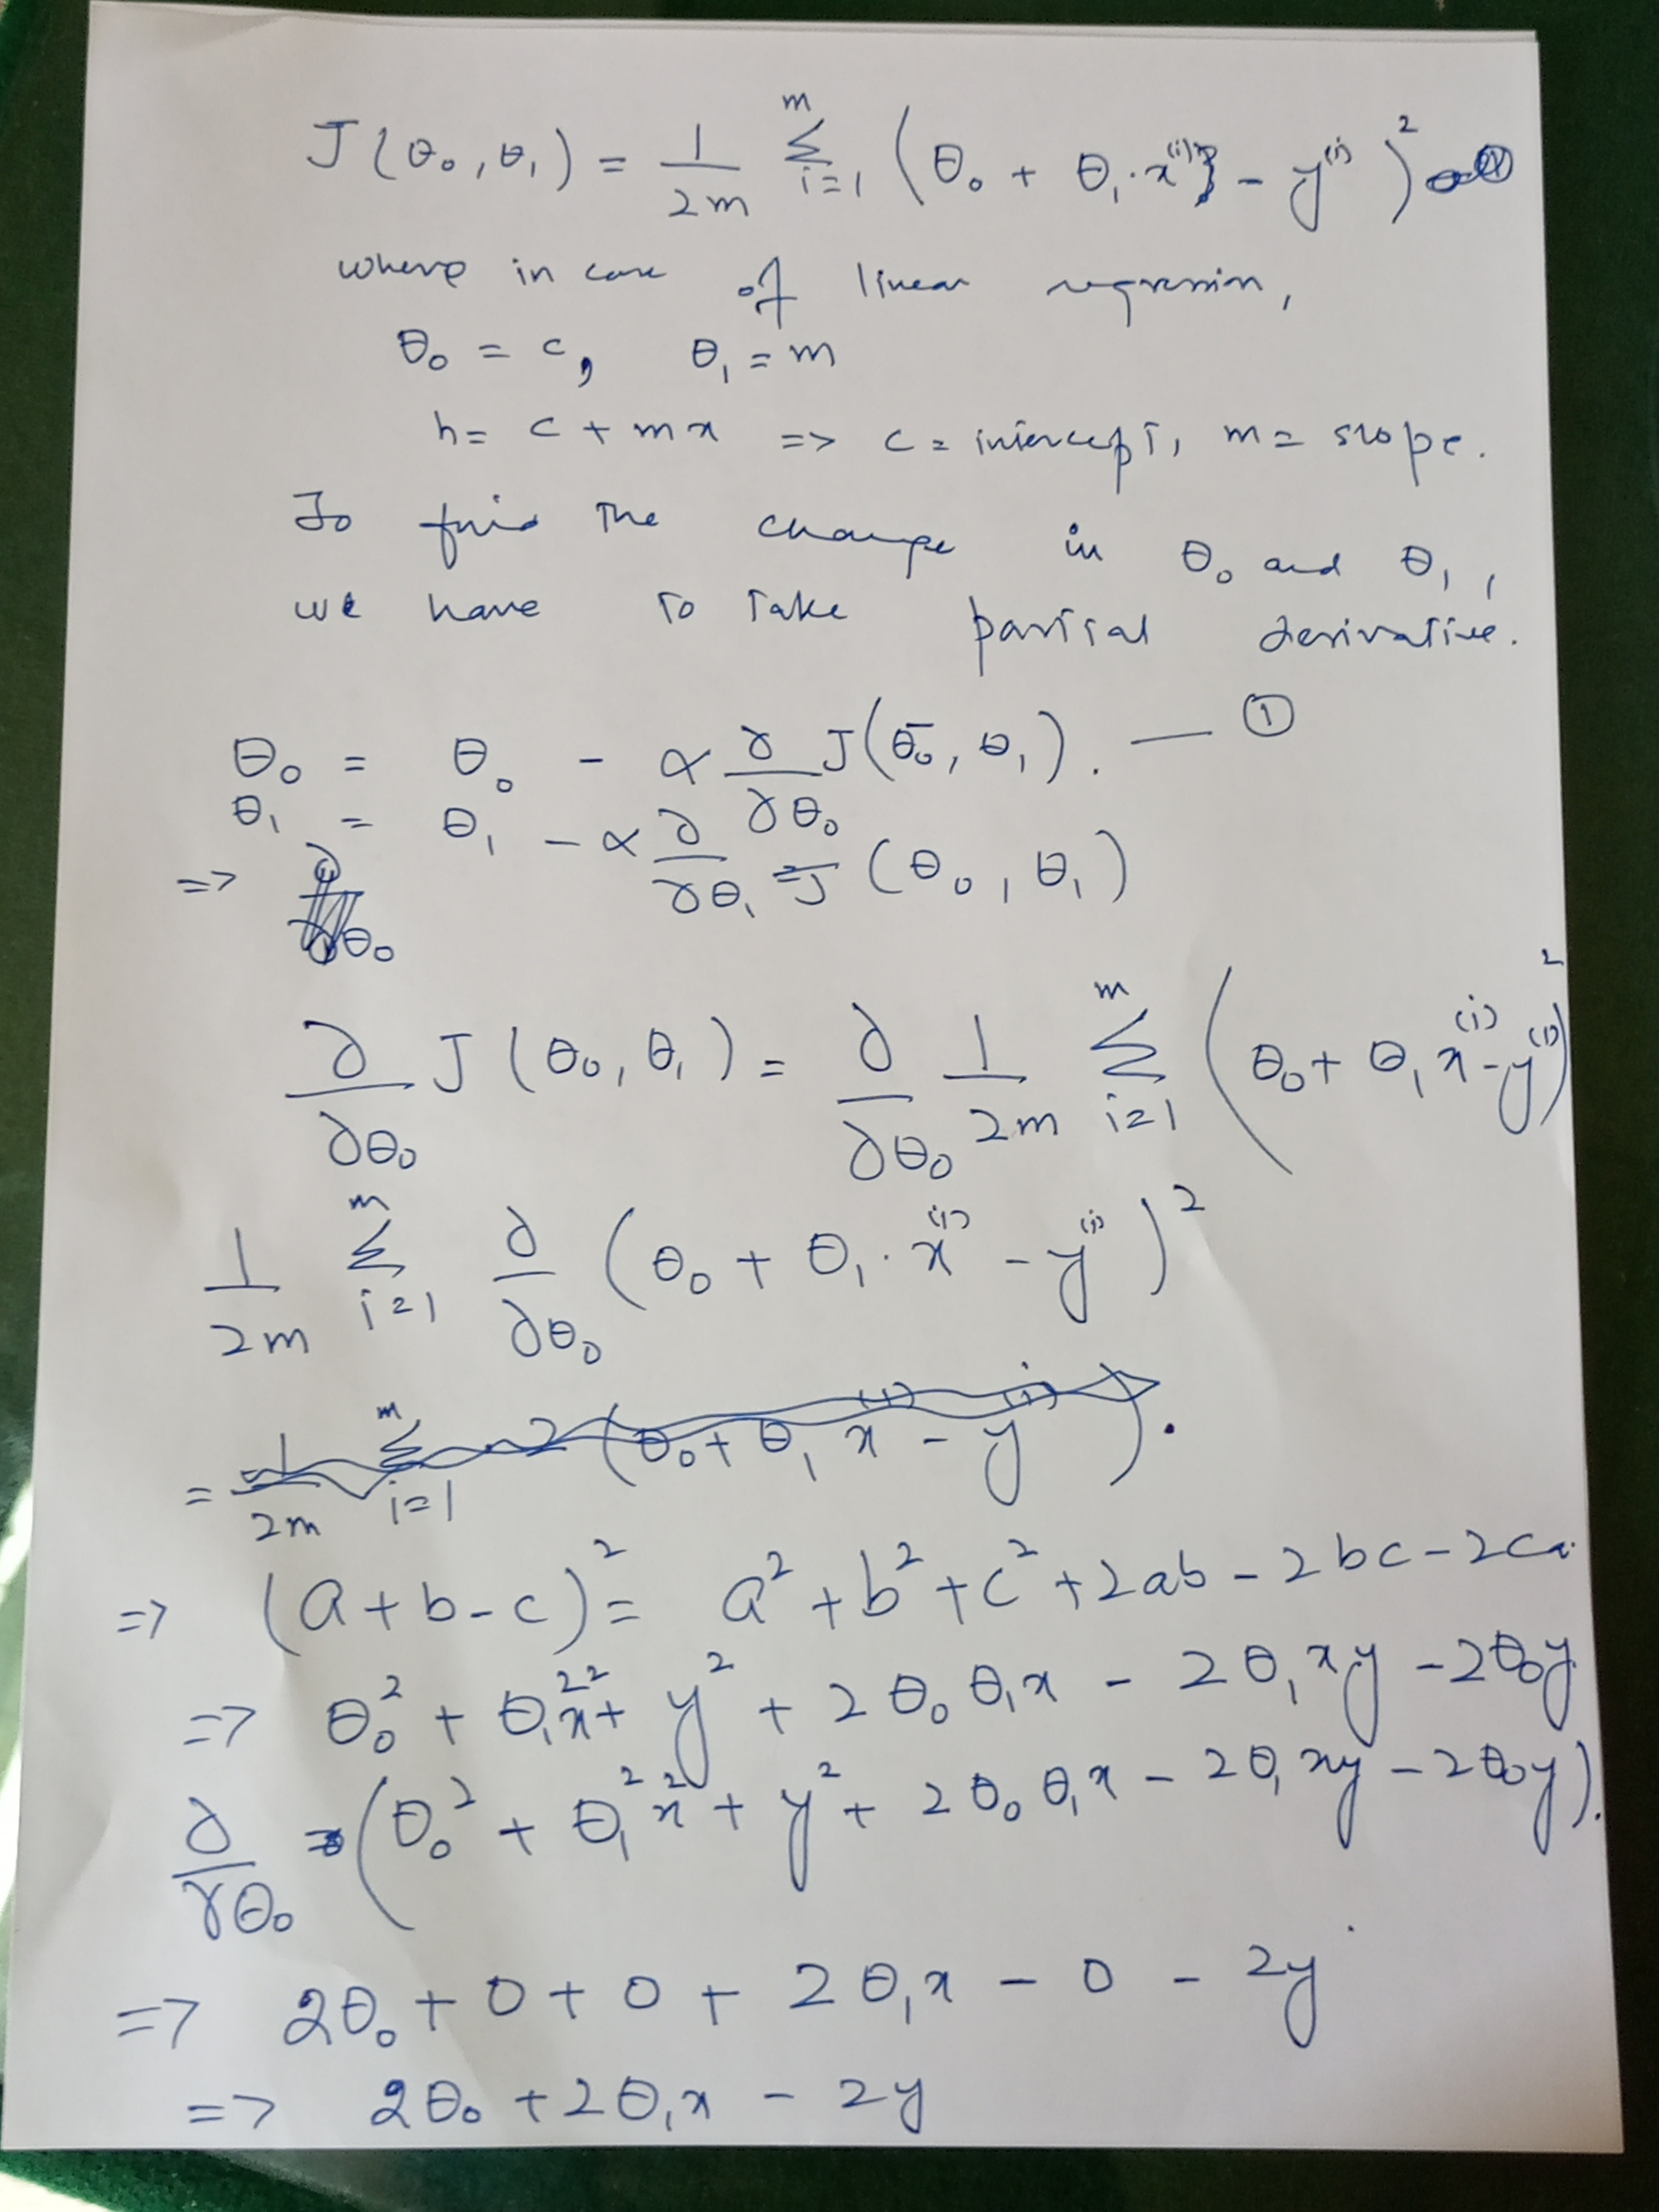 J(θ₀, θ₁) = 1/2m Σᵢ₌₁ᵐ (θ₀ + θ₁·x⁽ⁱ⁾ - y⁽ⁱ⁾)²
where in case of linear regression,
θ₀ = c, θ₁ = m
h = c + mx => c = intercept, m = slope.
To find the change in θ₀ and θ₁,
we have to take partial derivative.
θ₀ = θ₀ - α ∂/∂θ₀ J(θ₀, θ₁). — ①
θ₁ = θ₁ - α ∂/∂θ₁ J(θ₀, θ₁)
=>
∂/∂θ₀ J(θ₀, θ₁) = ∂/∂θ₀ 1/2m Σᵢ₌₁ᵐ (θ₀ + θ₁x⁽ⁱ⁾ - y⁽ⁱ⁾)²
1/2m Σᵢ₌₁ᵐ ∂/∂θ₀ (θ₀ + θ₁·x⁽ⁱ⁾ - y⁽ⁱ⁾)²
= 1/2m Σᵢ₌₁ᵐ 2(θ₀ + θ₁x⁽ⁱ⁾ - y⁽ⁱ⁾).
=> (a + b - c)² = a² + b² + c² + 2ab - 2bc - 2ca.
=> θ₀² + θ₁²x² + y² + 2θ₀θ₁x - 2θ₁xy - 2θ₀y
∂/∂θ₀ (θ₀² + θ₁²x² + y² + 2θ₀θ₁x - 2θ₁xy - 2θ₀y).
=> 2θ₀ + 0 + 0 + 2θ₁x - 0 - 2y
=> 2θ₀ + 2θ₁x - 2y